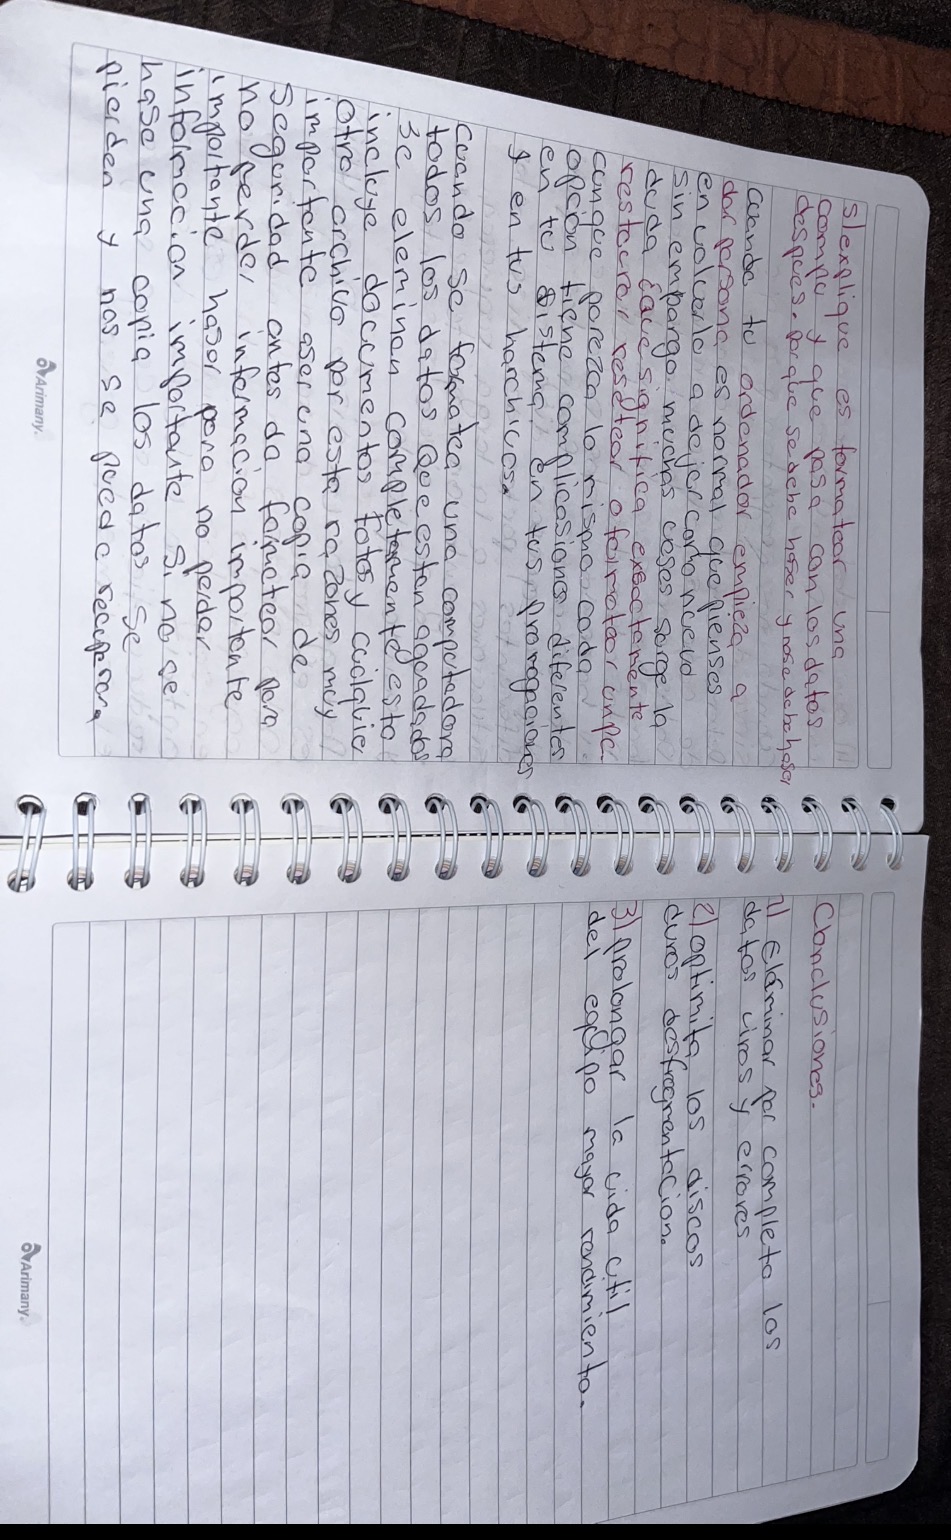 slexplique es formatear una
compu y que pasa con los datos
despues. porque se debe haser y nose debe haser
cuando tu ordenador empieza a
dar persona es normal que pienses
en volverlo a dejar como nuevo
sin empargo muchas ceses sorge la
duda ¿que significa exsactamente
restaurar resetear o formatear unpc
cunque parezca lo mismo cada
opcion tiene complicasiones diferentes
en tu sistema, en tus prorogaciones
y en tus harchicos.
Cuando se formatea una computadora
todos los datos que estan aguadados
se eleminan completemente esto
incluye documentos fotos y cualquie
otro archivo por esta razones muy
importente aser una copia de
Seguridad antes da formetear para
no perder informacion importente
importante haser pora no perder
informacion importante si no se
hase una copia los datos se
pierden y nos se puede recuperar.
Arimany.
Conclusiones.
1) Eleminar por completo los
datos viros y errores
2) optimita los discos
duros desfregmentacion.
3) prolongar la vida util
del equipo mayor rendimiento.
Arimany.